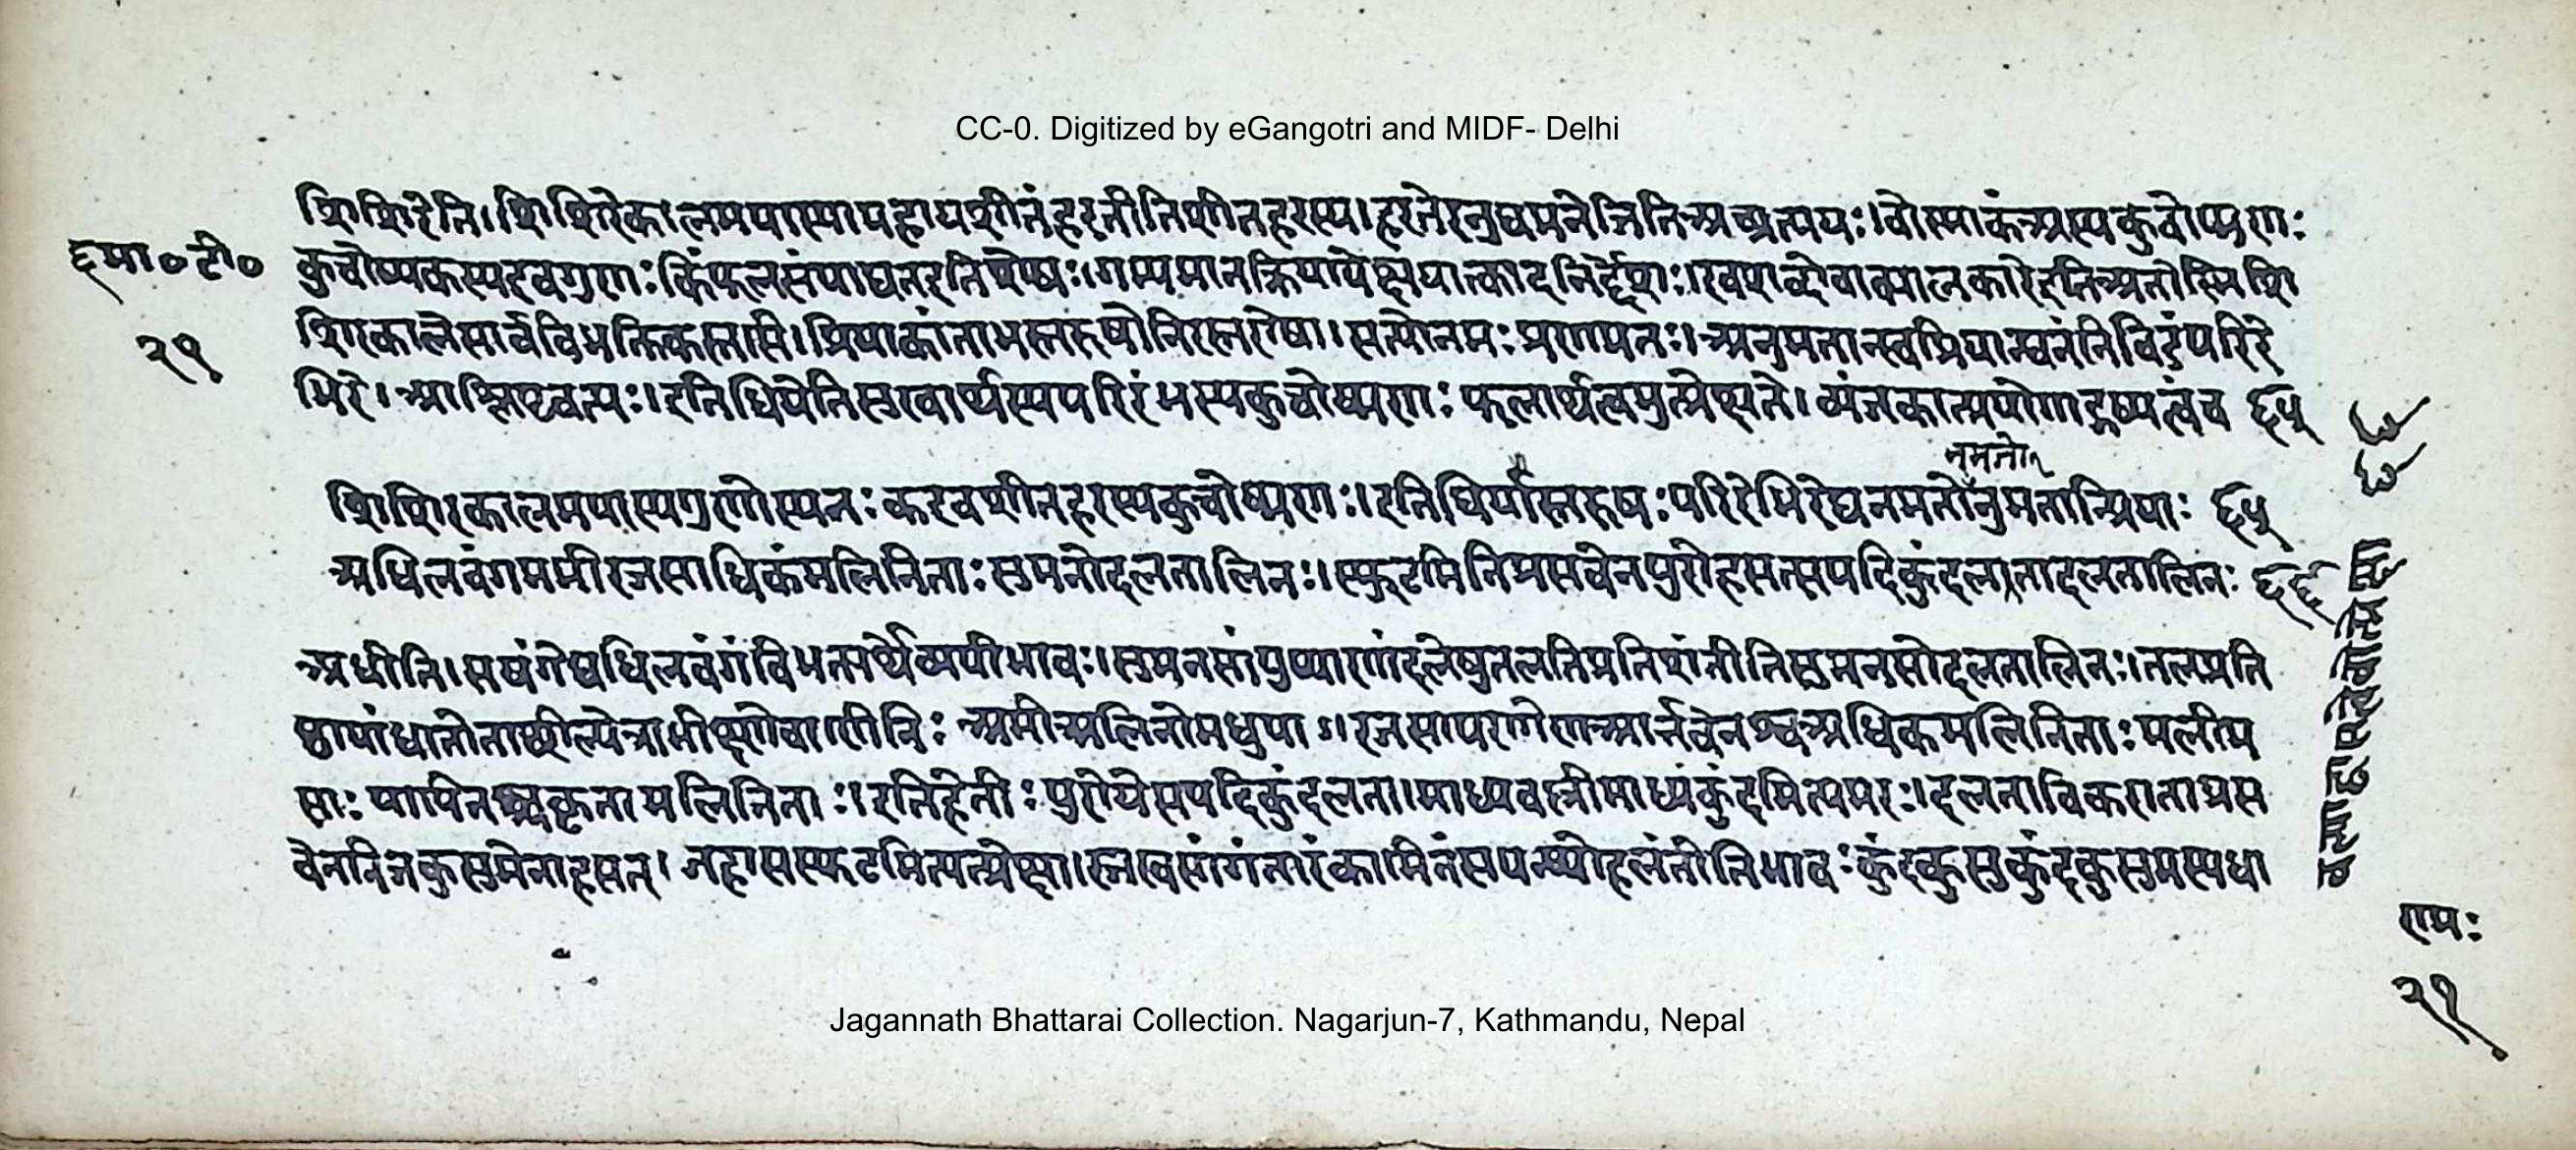 CC-0. Digitized by eGangotri and MIDF- Delhi
शिशिरेति। शिशिरेकालमपास्यापहायशीतंहरतीतिशीतहरस्य। हरतेरनुद्यमनेजितिअच्प्रत्ययः। वोस्माकंअस्यकुचोष्मणः
६मा०टी०
कुचोष्मकस्यइवगुणः किंफलसंपाद्यतइतिशेषः। गम्यमानक्रियापेक्षयात्काइनिर्द्देशः। इवशब्दोवाक्यालंकारेइतिअतोस्मिशि
२१
शिरकालेसार्वविभक्तिकस्तसि। प्रियाकांतामस्तरुषोनिरस्तरोषा। सत्योनमः प्रणमनः। अनुमतान्स्वप्रियान्घनंनिविडंपरिरे
भिरे। आश्लिष्टवत्यः। इतिधियेतिसुखार्थस्यपरिरंभस्यकुचोष्मणः फलार्थत्वमुत्प्रेक्ष्यते। व्यंजकाप्रयोगाद्गम्यत्वंच ६५
नमतो
शिशिरकालमपास्यगुणोस्यनः कइवशीतहरस्यकुचोष्मणः। इतिधियास्तरुषः परिरेभिरेघनमतोनुमतान्प्रियाः ६५
अधिलवंगममीरजसाधिकंमलिनिताः सुमनोदलतालिनः। स्फुटमितिप्रसवेनपुरोहसत्सपदिकुंदलतादलतालिनः ६६
अधीति। लवंगेष्वधिलवंगंविभक्त्यर्थेव्ययीभावः। सुमनसांपुष्पाणांदलेषुतलतिप्रतिशंतीतिसुमनसोदलतालिनः। तलप्रति
ष्ठायांधातोताच्छील्येत्राभीक्ष्ण्येवाणीनिः अमीअलिनोमधुपा। रजसापरागेणआर्त्तवेनश्चअधिकमलिनिताः मलीम
साः पापिनश्चकृतामलिनिताः। इतिहेतोः पुरोयेसपदिकुंदलता। माध्यवल्लीमाध्यंकुंदमित्यमरः। दलताविकशताप्रस
वेननिजकुसुमेनाहसत्। जहासस्फुटमित्युत्प्रेक्षा। स्त्रस्वसांगंतारंकामिनंसपत्न्योहसंतीतिभावः कुंदकुसुकुंदकुसुमस्यधा
६६
रामः
२१
Jagannath Bhattarai Collection. Nagarjun-7, Kathmandu, Nepal